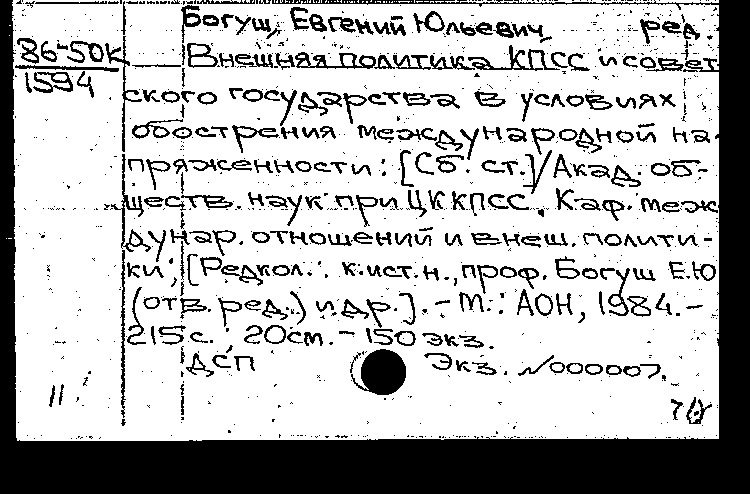 Богуш, Евгений Юльевич ред.
86-50К
1594
Внешняя политика КПСС и совет
ского государства в условиях
обострения международной на-
пряженности: [Сб. ст.]/Акад. об-
ществ. наук при ЦК КПСС, Каф. меж
дунар. отношений и внеш. полити-
ки; [Редкол.: к.ист.н., проф. Богуш Е.Ю
(отв. ред.) и др.]. - М.: АОН, 1984.-
215 с.; 20см. - 150 экз.
ДСП Экз. №000007.
11.